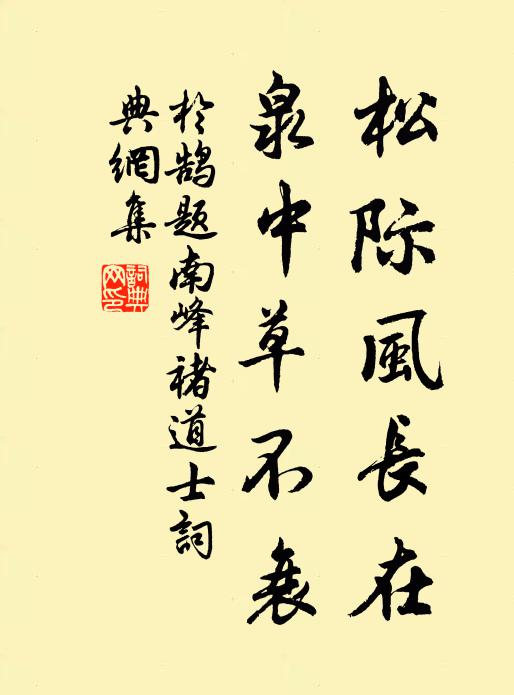 松际風長在
泉中草不衰
於鹄题南峰褚道士詞
典網集
詞典
网印